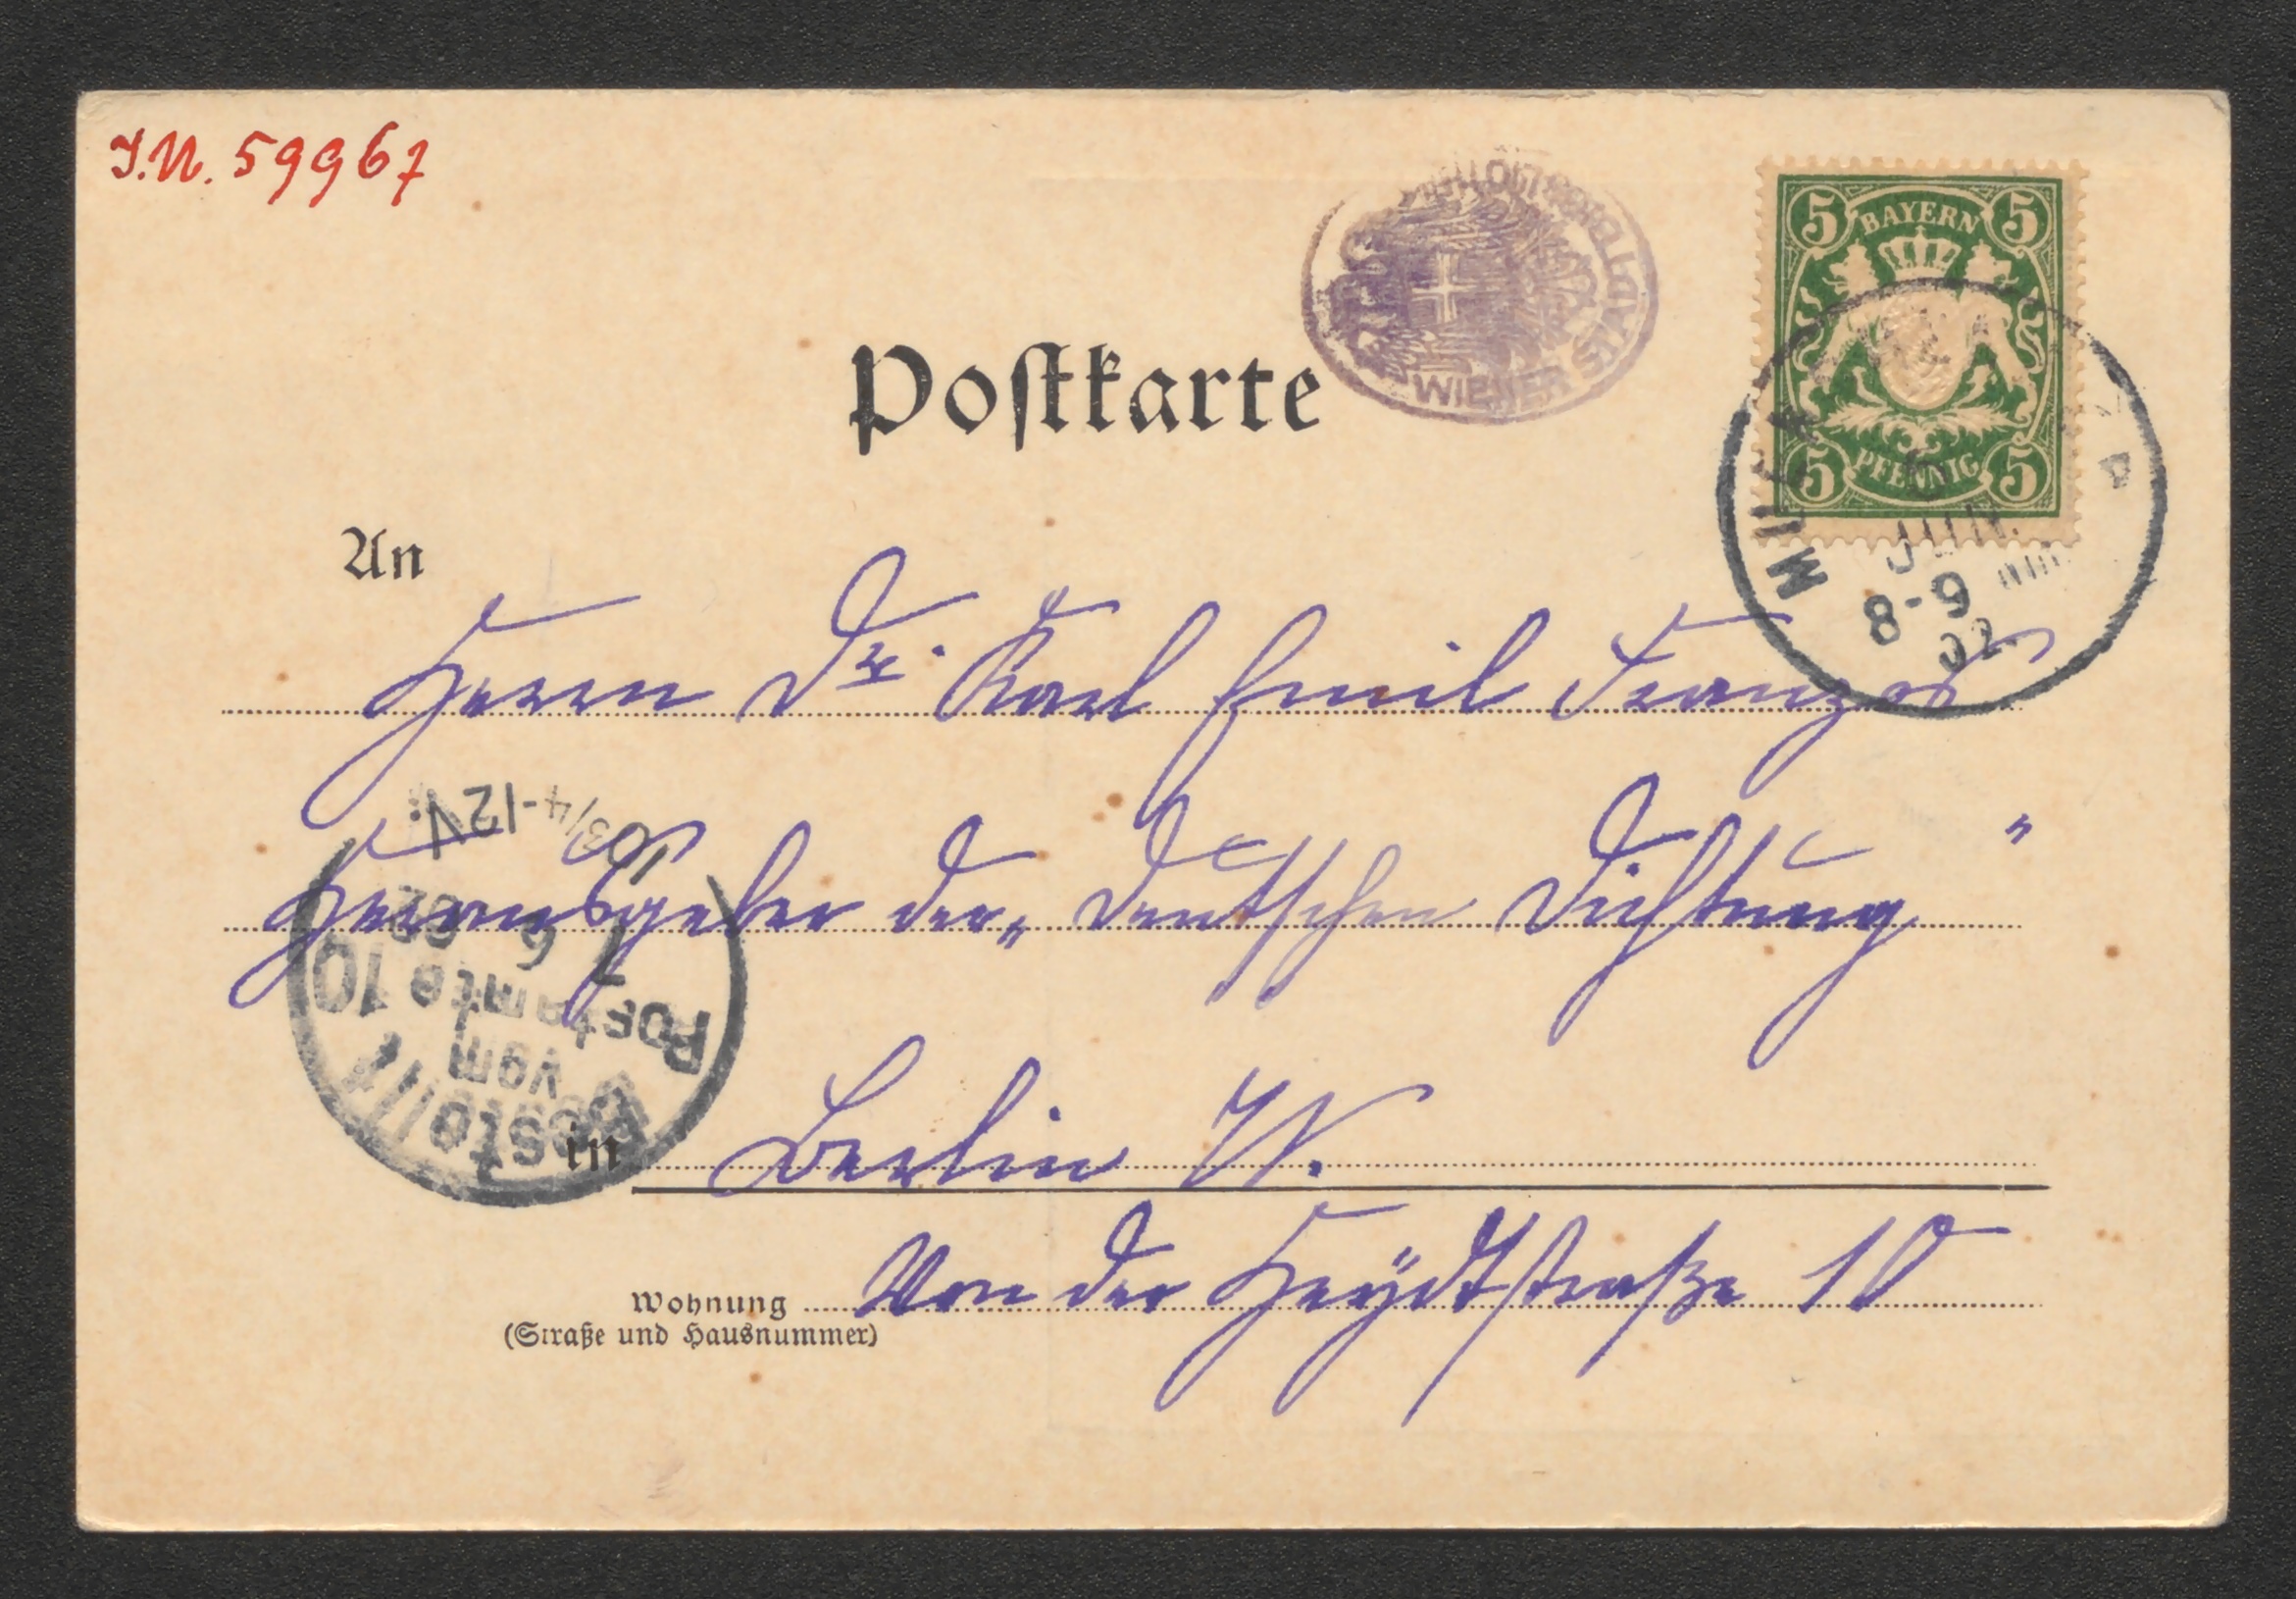 I.N. 59967
WIENER STADTBIBLIOTHEK
5 BAYERN 5
5 PFENNIG 5
JUN.
8-9
02
Postkarte
An
Herrn Dr. Karl Emil Franzos
Herausgeber der „Deutschen Dichtung"
in Berlin W.
Wohnung Von der Heydtstraße 10
(Straße und Hausnummer)
Bestellt
vom
Postamte 10
7 6 02
10 3/4-12V.